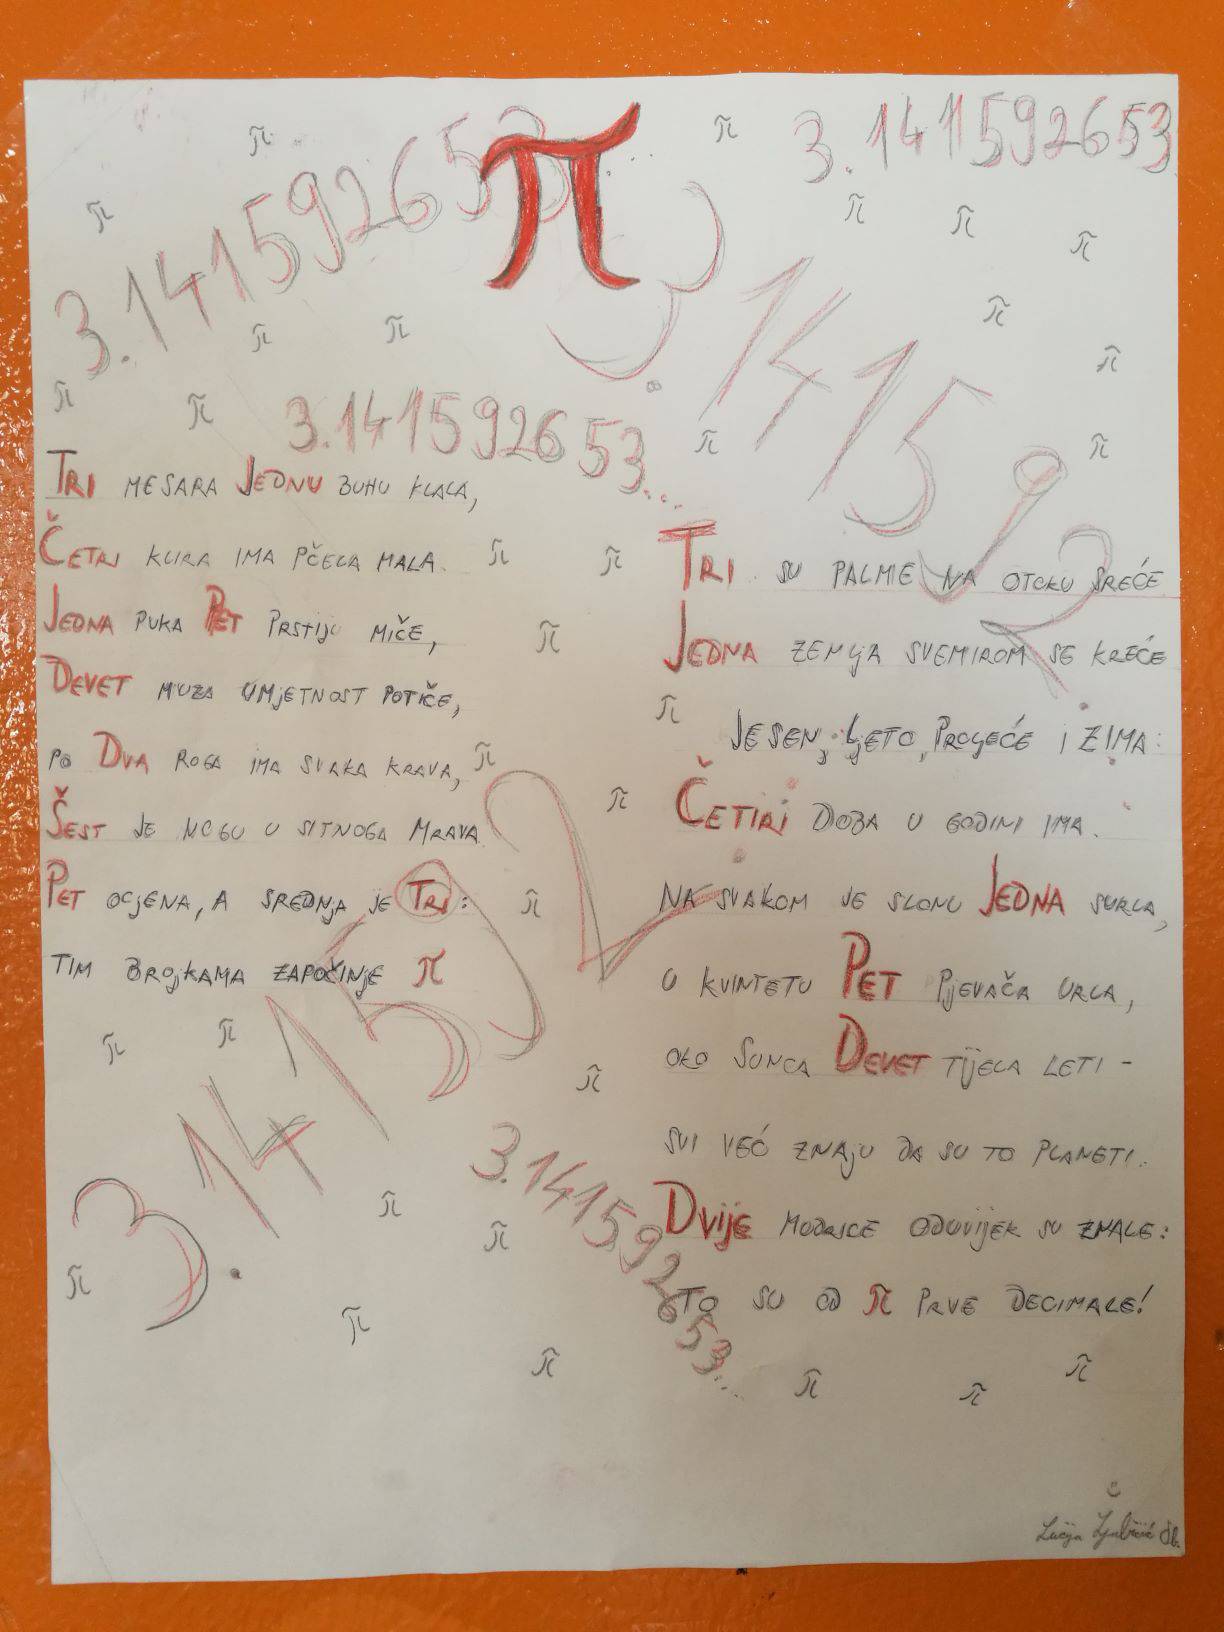 π
3.141592653
3.141592653
3.141592
3.141592653...
TRI MESARA JEDNU BUHU KLALA,
ČETRI KLIRA IMA PČELA MALA.
JEDNA PUKA PET PRSTIJU MIČE,
DEVET MUZA UMJETNOST POTIČE,
PO DVA ROGA IMA SVAKA KRAVA,
ŠEST JE NOGU U SITNOGA MRAVA.
PET OCJENA, A SREDNJA JE TRI:
TIM BROJKAMA ZAPOČINJE π
TRI SU PALME NA OTOKU SREĆE
JEDNA ZEMLJA SVEMIROM SE KREĆE
JESEN, LJETO, PROLJEĆE I ZIMA:
ČETIRI DOBA U GODINI IMA.
NA SVAKOM JE SLONU JEDNA SURLA,
U KVINTETU PET PJEVAČA URLA,
OKO SUNCA DEVET TIJELA LETI -
SVI VEĆ ZNAJU DA SU TO PLANETI.
DVIJE MODRICE ODUVIJEK SU ZNALE:
TO SU OD π PRVE DECIMALE!
3.141592
3.141592653...
Lucija Ljubičić 8b.